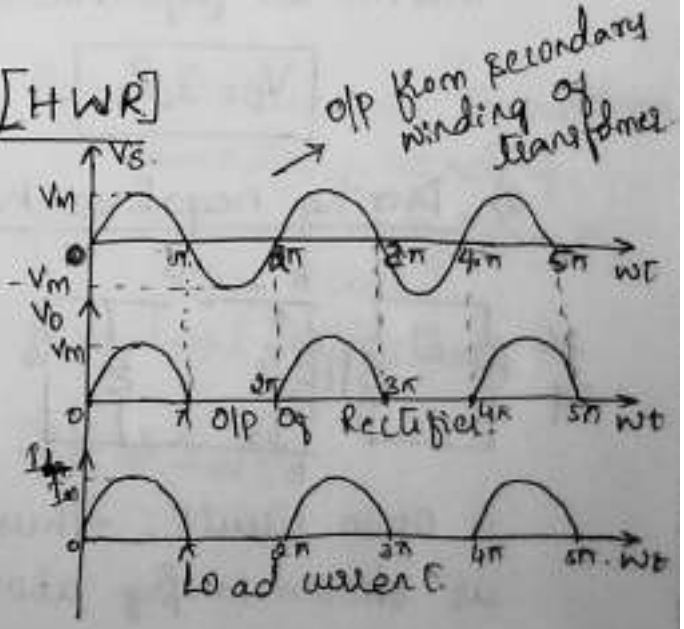 [HWR]
O/P from secondary
winding of
transformer
Vs.
Vm
0 π 2π 3π 4π 5π wt
-Vm
Vo
Vm
0 π 2π 3π 4π 5π wt
O/P Of Rectifier
Im
0 π 2π 3π 4π 5π wt
Load current